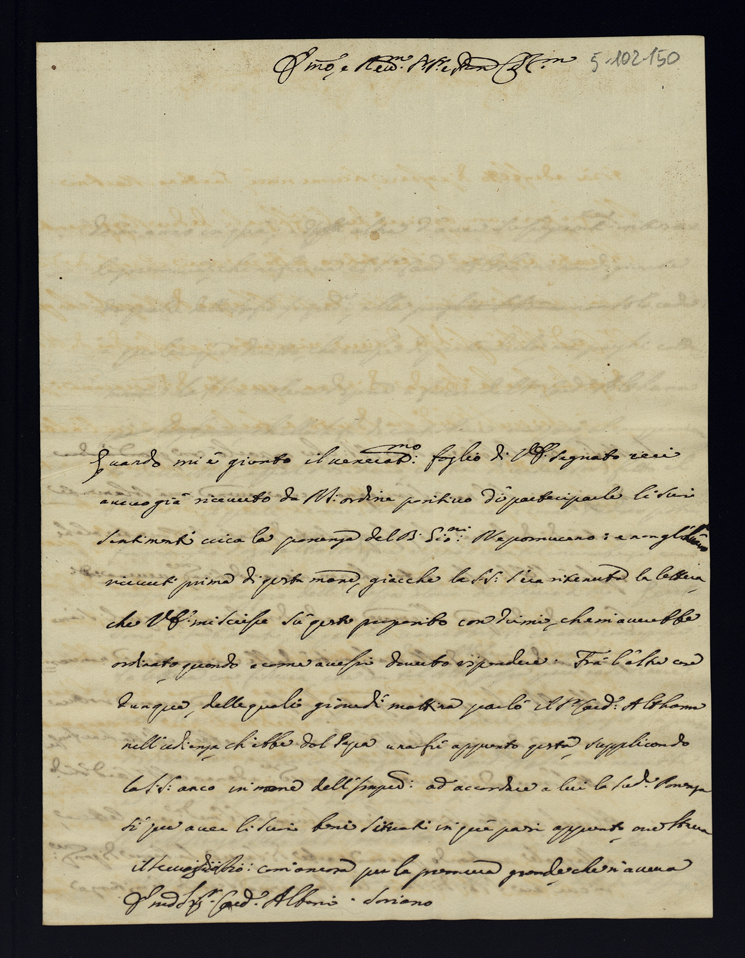 Em̃o, e Reṽm. Sr. e Pron. Col.m 5-102-150
Quando mi è giunto il venerat.mo foglio di V.E. segnato
avevo già ricevuto da N. ordine positivo di parteciparle li suoi
sentimenti circa la ponenza del B. Gio:ni Nepomuceno: e non gli
ricevuti prima di questa mane, giacche la S.S. s'era ritenuta la lettera,
che V.E. mi scrisse sù questo proposito con dirmi, che mi averebbe
ordinato, quando e come avessi dovuto rispondere. Frà l'altre cose
dunque, delle quali giovedì mattina parlò il S. Card. Althann
nell'udienza, ch'ebbe dal Papa una fù appunto questa, supplicando
la S.S. anco in nome dell'Imper: ad accordare a lui la sud.a Ponenza
sì per aver li suoi beni situati in quei paesi appunto, ove
come ancora per la premura grande, che ne aveva
Em̃o Sig. Card. Albani. Soriano